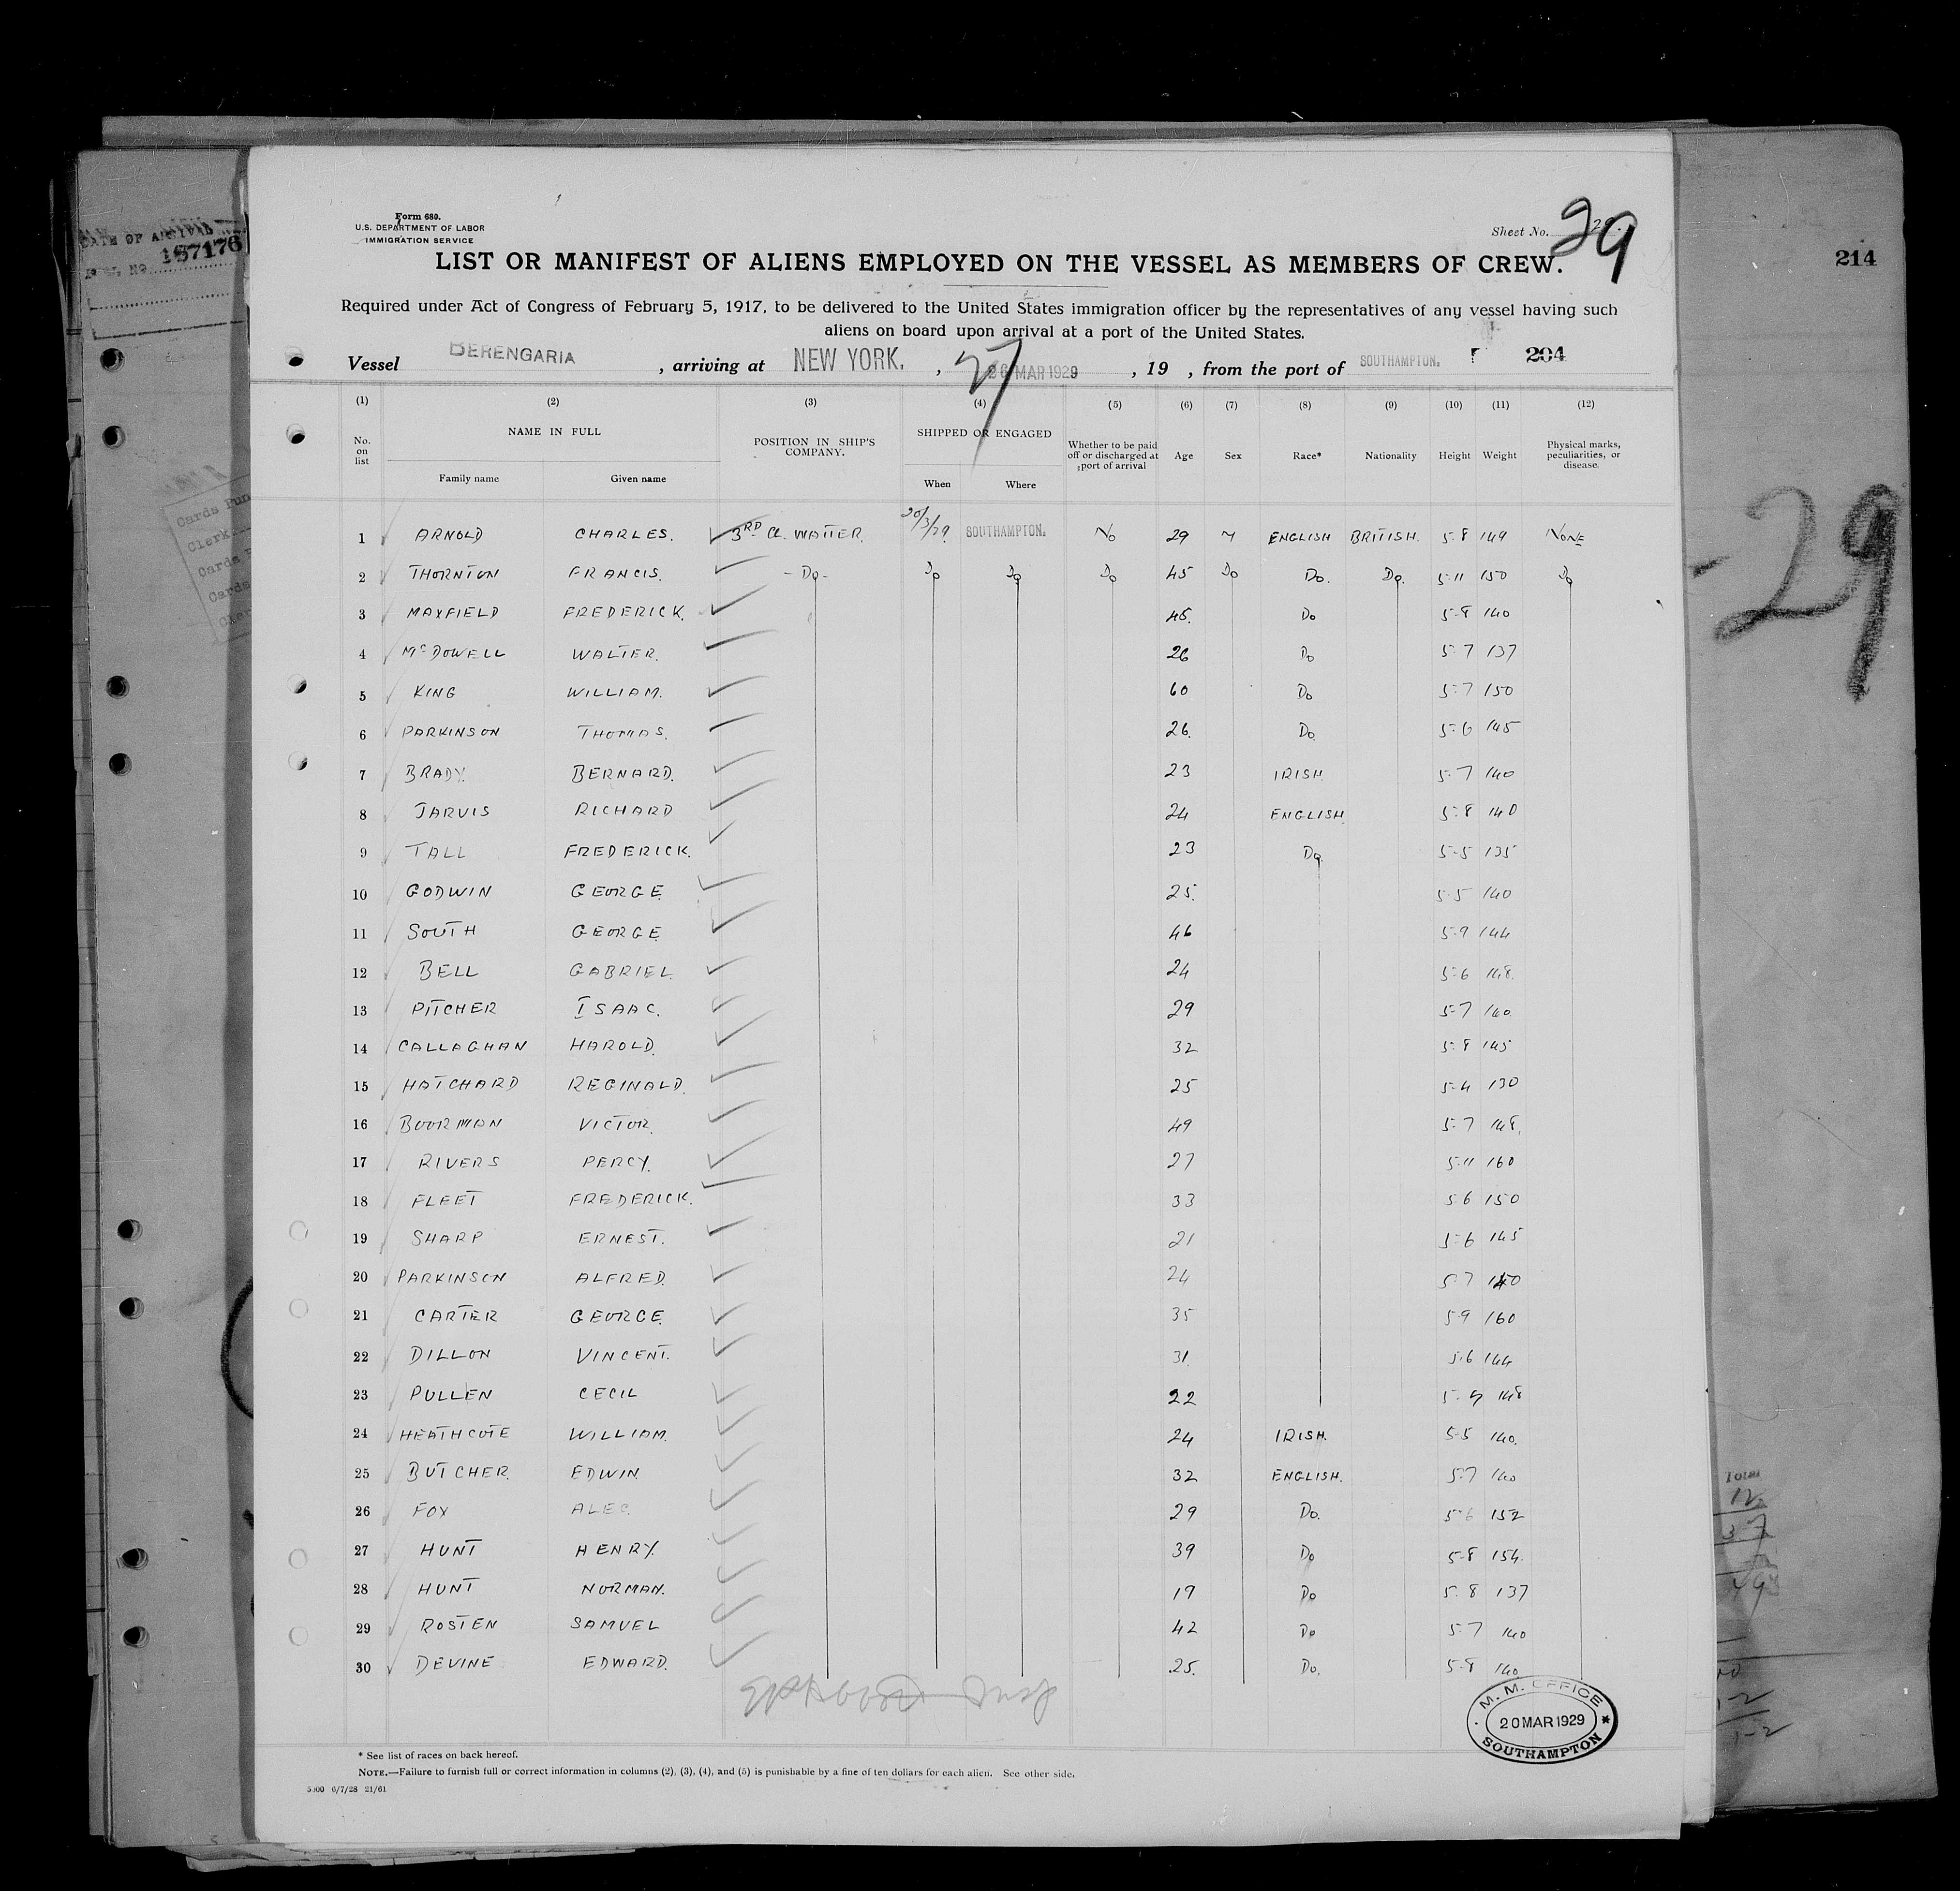 DATE OF ARRIVAL
187176
Form 680.
U.S. DEPARTMENT OF LABOR
IMMIGRATION SERVICE
Sheet No. 29
29
214
LIST OR MANIFEST OF ALIENS EMPLOYED ON THE VESSEL AS MEMBERS OF CREW.
Required under Act of Congress of February 5, 1917, to be delivered to the United States immigration officer by the representatives of any vessel having such
aliens on board upon arrival at a port of the United States.
Vessel BERENGARIA , arriving at NEW YORK. , 27 26 MAR 1929 , 19 , from the port of SOUTHAMPTON. 204
(1) (2) (3) (4) (5) (6) (7) (8) (9) (10) (11) (12)
No. on list NAME IN FULL POSITION IN SHIP'S COMPANY. SHIPPED OR ENGAGED Whether to be paid off or discharged at port of arrival Age Sex Race* Nationality Height Weight Physical marks, peculiarities, or disease.
Family name Given name When Where
1 ARNOLD CHARLES. 3RD CL. WAITER. 20/3/29. SOUTHAMPTON. No 29 M ENGLISH BRITISH. 5-8 149 NONE
2 THORNTON FRANCIS. -Do- Do Do Do 45 Do Do. Do. 5-11 150 Do
3 MAXFIELD FREDERICK. 45. Do 5-8 140
4 McDOWELL WALTER. 26 Do 5-7 137
5 KING WILLIAM. 60 Do 5-7 150
6 PARKINSON THOMAS. 26. Do. 5-6 145
7 BRADY. BERNARD. 23 IRISH. 5-7 140
8 JARVIS RICHARD 24 ENGLISH. 5-8 140
9 TALL FREDERICK. 23 Do. 5-5 135
10 GODWIN GEORGE. 25. 5-5 140
11 SOUTH GEORGE. 46 5-9 144
12 BELL GABRIEL. 24 5-6 148.
13 PITCHER ISAAC. 29 5-7 140.
14 CALLAGHAN HAROLD. 32 5-8 145
15 HATCHARD REGINALD. 25 5-4 130
16 BOORMAN VICTOR. 49 5-7 148.
17 RIVERS PERCY. 27 5-11 160
18 FLEET FREDERICK. 33 5-6 150
19 SHARP ERNEST. 21 5-6 145
20 PARKINSON ALFRED. 24 5-7 140
21 CARTER GEORGE. 35 5-9 160
22 DILLON VINCENT. 31. 5-6 144
23 PULLEN CECIL 22 5- 148
24 HEATHCOTE WILLIAM. 24 IRISH. 5-5 140.
25 BUTCHER. EDWIN. 32 ENGLISH. 5-7 140
26 FOX ALEC. 29 Do. 5-6 152
27 HUNT HENRY. 39 Do 5-8 154.
28 HUNT NORMAN. 19 Do 5-8 137
29 ROSTEN SAMUEL 42 Do 5-7 140
30 DEVINE EDWARD. 25. Do. 5-8 140
M. M. OFFICE
20 MAR 1929
SOUTHAMPTON
* See list of races on back hereof.
NOTE.—Failure to furnish full or correct information in columns (2), (3), (4), and (5) is punishable by a fine of ten dollars for each alien. See other side.
5000 6/7/28 21/61
-29
Total
12
37